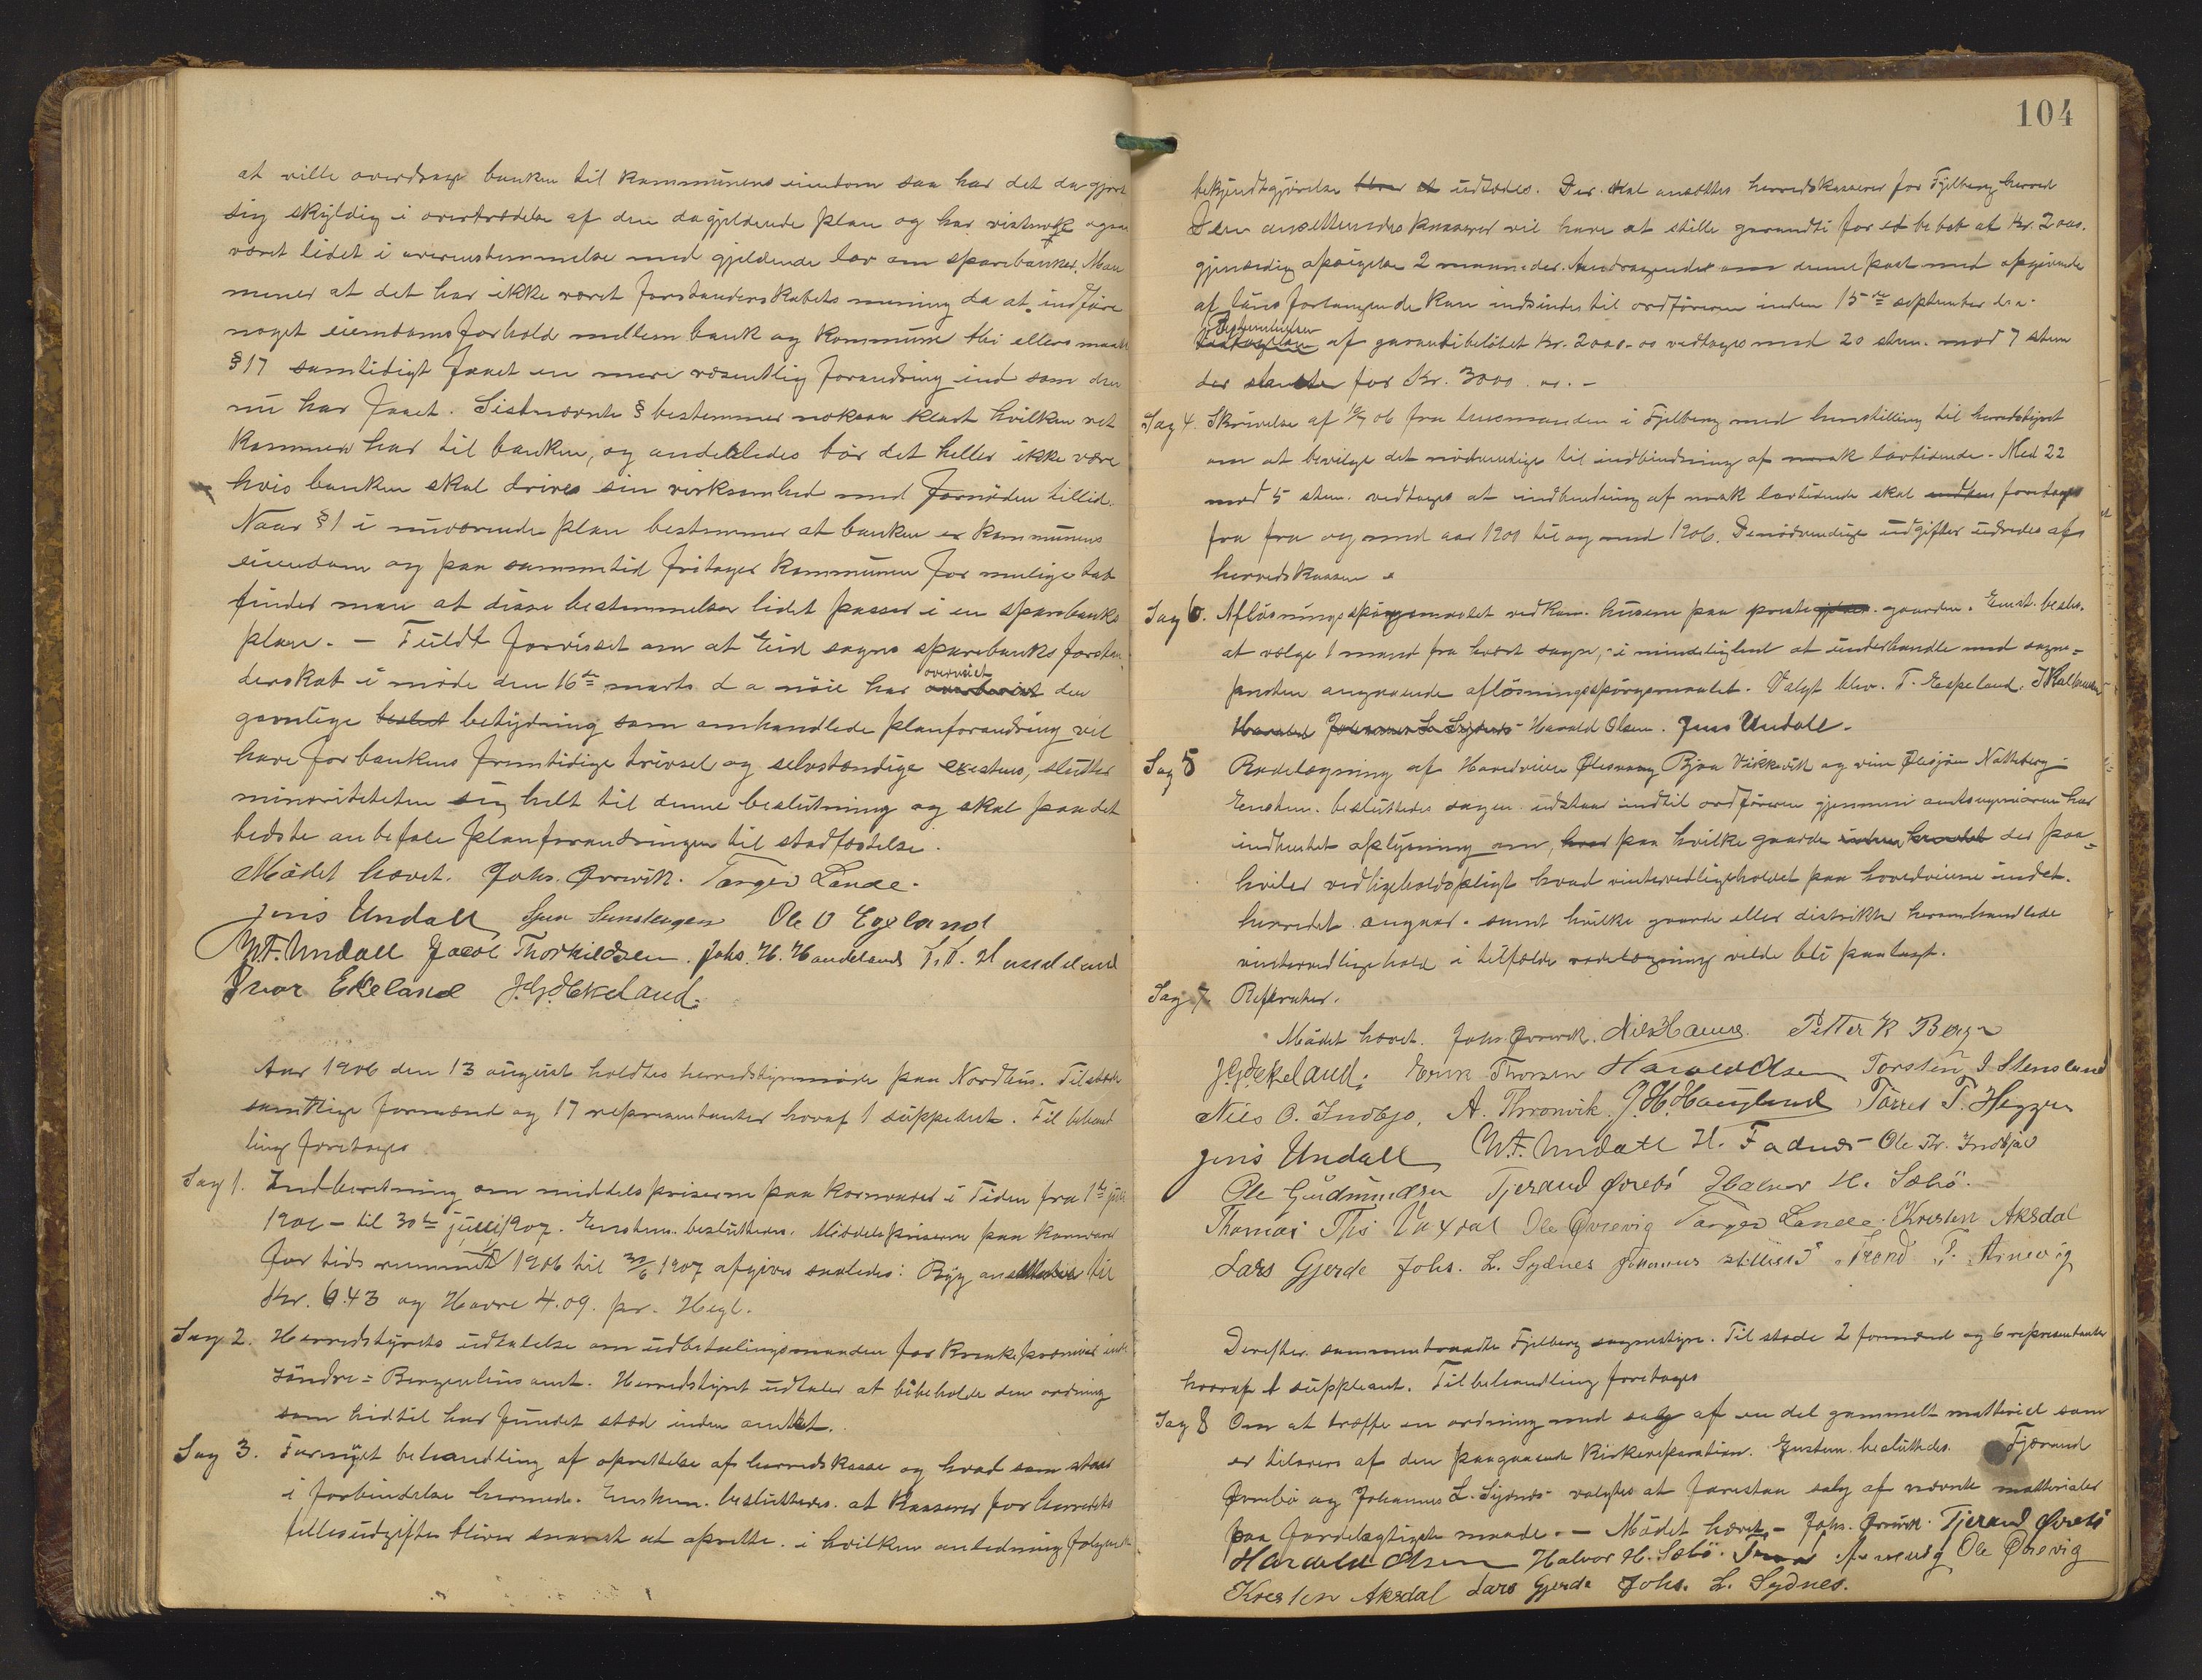 at ville overdrage banken til kommunens eiendom saa har det da gjort
sig skyldig i overtrædelse af den dagjeldende plan og har vistnok ogsaa
været lidet i overenstemmelse med gjeldende lov om sparebanker. Man
mener at det har ikke været forstanderskabets mening da at indføre
noget eiendomsforhold mellem bank og kommune thi ellers maatte
§ 17 samtidigt faaet en mere væsentlig forandring end som den
nu har faaet. Sistnævnte § bestemmer noksaa klart hvilken ret
kommunen har til banken, og anderledes bør det heller ikke være
hvis banken skal drives sin virksomhed med fornøden tillid.
Naar § 1 i nuværende plan bestemmer at banken er kommunens
eiendom og paa sammetid fritager kommunen for mulige tab
finder man at disse bestemmelser lidet passer i en sparebanks
plan. — Fuldt forvisset om at Eid sogns sparebanks forstan
derskab i møde den 16de marts d a nøie har overveiet den
gavnlige beslut betydning som omhandlede planforandring vil
have for bankens fremtidige trivsel og selvstændige existens, slutter
minoriteten sig helt til denne beslutning og skal paa det
bedste anbefale planforandringen til stadfæstelse.
Mødet hævet. Johs. Øvrevik. Torger Lande.
Jens Undall Ole O Egeland
M.F. Undall Jacob Thorkildsen. Johs. H. Handeland
Ivar Ekeland J.G. Ekeland.
Aar 1906 den 13 august holdtes herredstyremøde paa Nordhus. Tilstede
samtlige formænd og 17 repræsentanter hvoraf 1 suppleant. Til behand
ling foretages
Sag 1. Indberetning om middelspriserne paa kornvarer i Tiden fra 1ste juli
1906 – til 30te juni 1907. Enstem. besluttedes. Middelspriserne paa kornvarer
for tids rummet 1/7 1906 til 30/6 1907 afgives saaledes: Byg ansættes til
Kr. 6.43 og Havre 4.09. pr. Hegl.
Sag 2. Herredstyrets udtalelse om udbetalingsmaaden for
Søndre = Bergenhus amt. Herredstyret udtaler at bibeholde den ordning
som hidtil har fundet sted inden amtet.
Sag 3. Fornyet behandling af oprettelse af herredskasse og hvad som staar
i forbindelse hermed. Enstem. besluttedes. at kasserer for herredets
fellesudgifter bliver snarest at oprette. i hvilken anledning følgende
104
bekjendtgjørelse blir at udstedes. Der skal ansættes herredskasserer for Fjelberg herred
Den ansættendes kasserer vil have at stille garandti for et beløb at Kr. 2000.
gjensidig opsigelse 2 maaneder. Andragender om denne post med opgivende
af løns forlangende kan indsendes til ordføreren inden 15de september d.a.
Bestemmelsen af garantibeløbet Kr. 2000.00 vedtages med 20 stem. mod 7 stem
der stemte for Kr. 3000.00. –
Sag 4. Skrivelse af 06 fra lensmanden i Fjelberg med henstilling til herredstyret
om at bevilge det nødvendige til indbindning af norsk lovtidende. Med 22
mod 5 stem. vedtages at indbindning af norsk lovtidende skal foretages
fra fra og med aar 1901 til og med 1906. De nødvendige udgifter udredes af
herredskassen
Sag 6. Afløsningsspørgsmaalet vedkom. husene paa prestegaarden. Enst. beslu.
at vælge 1 mand fra hvert sogn, i mindelighed at underhandle med sogne=
presten angaaende afløsningsspørgsmaalet. Valgt blev. T. Espeland.
Harald Johannes L. Sydnes Harald Olsen. Jens Undall.
Sag 5 Rodelægning af Hovedveien Ølensvaag Bjoa Vikkevik og veien Ølensjøen Natteberg
Enstem. besluttedes sagen udstaar indtil ordføreren gjennem amtsingeniøren har
indhentet oplysning om, hvad paa hvilke gaarde der paa=
hviler vedligeholdspligt hvad vintervedligeholdet paa hovedveiene indet.
herredet angaar. samt hvilke gaarde eller distrikter heromhandlede
vintervedligehold i tilfælde rodelægning vilde bli paalagt.
Sag 7 Referater.
Mødet hævet. Johs. Øvrevik. Nils Hauge. Petter K Berge
J.G. Ekeland. Erik Thorsen Harald Olsen Torsten J Stensland
Nils O. Indbjo. A. Thronvik. J.H. Haugland Torres T. Hegge
Jens Undall M.F. Undall H. Fadnes – Ole Tr. Indbjo
Ole Gudmundsen Tjerand Øvrebø Halvor H. Sæbø.
Thomas Ths Vaxdal Ole Øvrevig Torger Lande. Kresten Aksdal
Lars Gjerde Johs. L. Sydnes Trond T. Arnevig
Derefter sammentraadte Fjelberg sognestyre. Til stede 2 formænd og 6 repræsentanter
hvoraf 1 suppleant. Til behandling foretages
Sag 8 Om at træffe en ordning med salg af en del gammelt matteriel som
er tilovers af den paagaaende kirkereparation. Enstem. besluttedes. Tjerand
Øvrebø og Johannes L. Sydnes valgtes at forestaa salg af nævnte matterialer
paa fordelagtigste maade. – Mødet hævet. – Johs. Øvrevik. Tjerand Øvrebø
Harald Olsen Halvor H. Sæbø. Trond Arnevig Ole Øvrevig
Kresten Aksdal Lars Gjerde Johs. L. Sydnes.